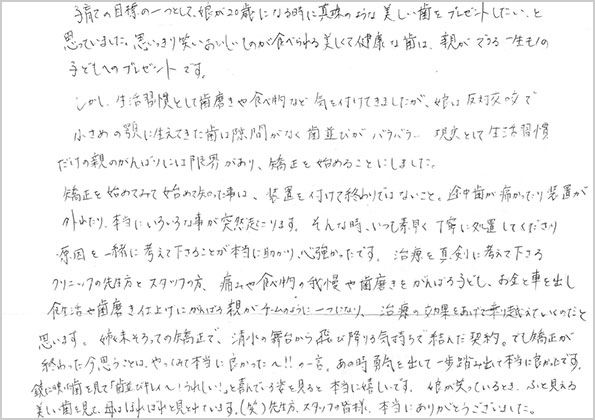 子育ての目標の一つとして、娘が20歳になる時に真珠のような美しい歯をプレゼントしたい、と
思っていました。思いっきり笑いおいしいものが食べられる美しくて健康な歯は、親ができる一生モノの
子どもへのプレゼントです。
しかし、生活習慣として歯磨きや食べ物など気を付けてきましたが、娘は反対咬合で
小さめの顎に生えてきた歯は隙間がなく歯並びがバラバラ… 現実として生活習慣
だけの親のがんばりには限界があり、矯正を始めることにしました。
矯正を始めてみて始めて知った事は、装置を付けて終わりではないこと。途中歯が痛かったり装置が
外れたり、本当にいろいろな事が突然起こります。そんな時、いつも素早く丁寧に処置してくださり
原因を一緒に考えて下さることが本当に助かり、心強かったです。治療を真剣に考えて下さる
クリニックの先生方とスタッフの方、痛みや食べ物の我慢や歯磨きをがんばる子ども、お金と車を出し
食生活や歯磨き仕上げにがんばる親がチームのように一つになり、治療の効果をあげて乗り越えていくのだと
思います。姉妹そろっての矯正で、清水の舞台から飛び降りる気持ちで結んだ契約。でも矯正が
終わった今思うことは、やってみて本当に良かった〜!!の一言。あの時勇気を出して一歩踏み出て本当に良かったです。
鏡に映る歯を見て「歯並びキレイ〜!うれしい!」と喜んでいる姿を見ると本当に嬉しいです。娘が笑っているとき、ふと見える
美しい歯を見て、母はほれぼれと見とれています。(笑)先生方、スタッフの皆様、本当にありがとうございました。